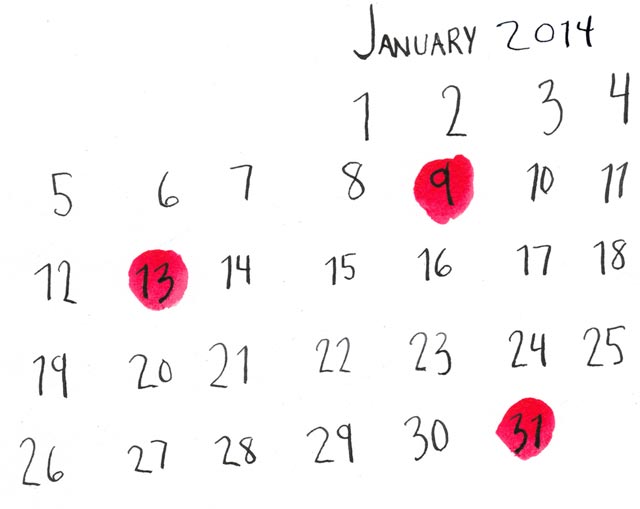 JANUARY 2014
1 2 3 4
5 6 7 8 9 10 11
12 13 14 15 16 17 18
19 20 21 22 23 24 25
26 27 28 29 30 31